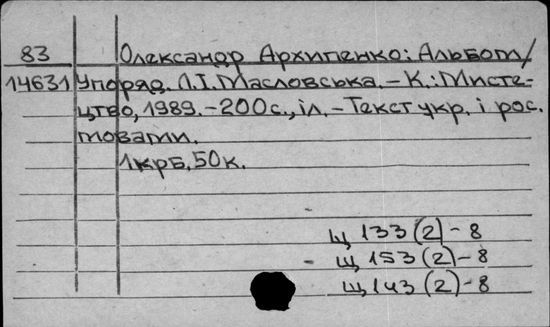 83 Олександр Архипенко: Альбом/
14631 Упоряд. Л.І. Масловська. – К.: Мисте-
цтво, 1989. – 200с., іл. – Текст укр. і рос.
мовами.
1крб, 50к.
Щ 133 (2) – 8
Щ 153 (2) – 8
Щ 143 (2) – 8